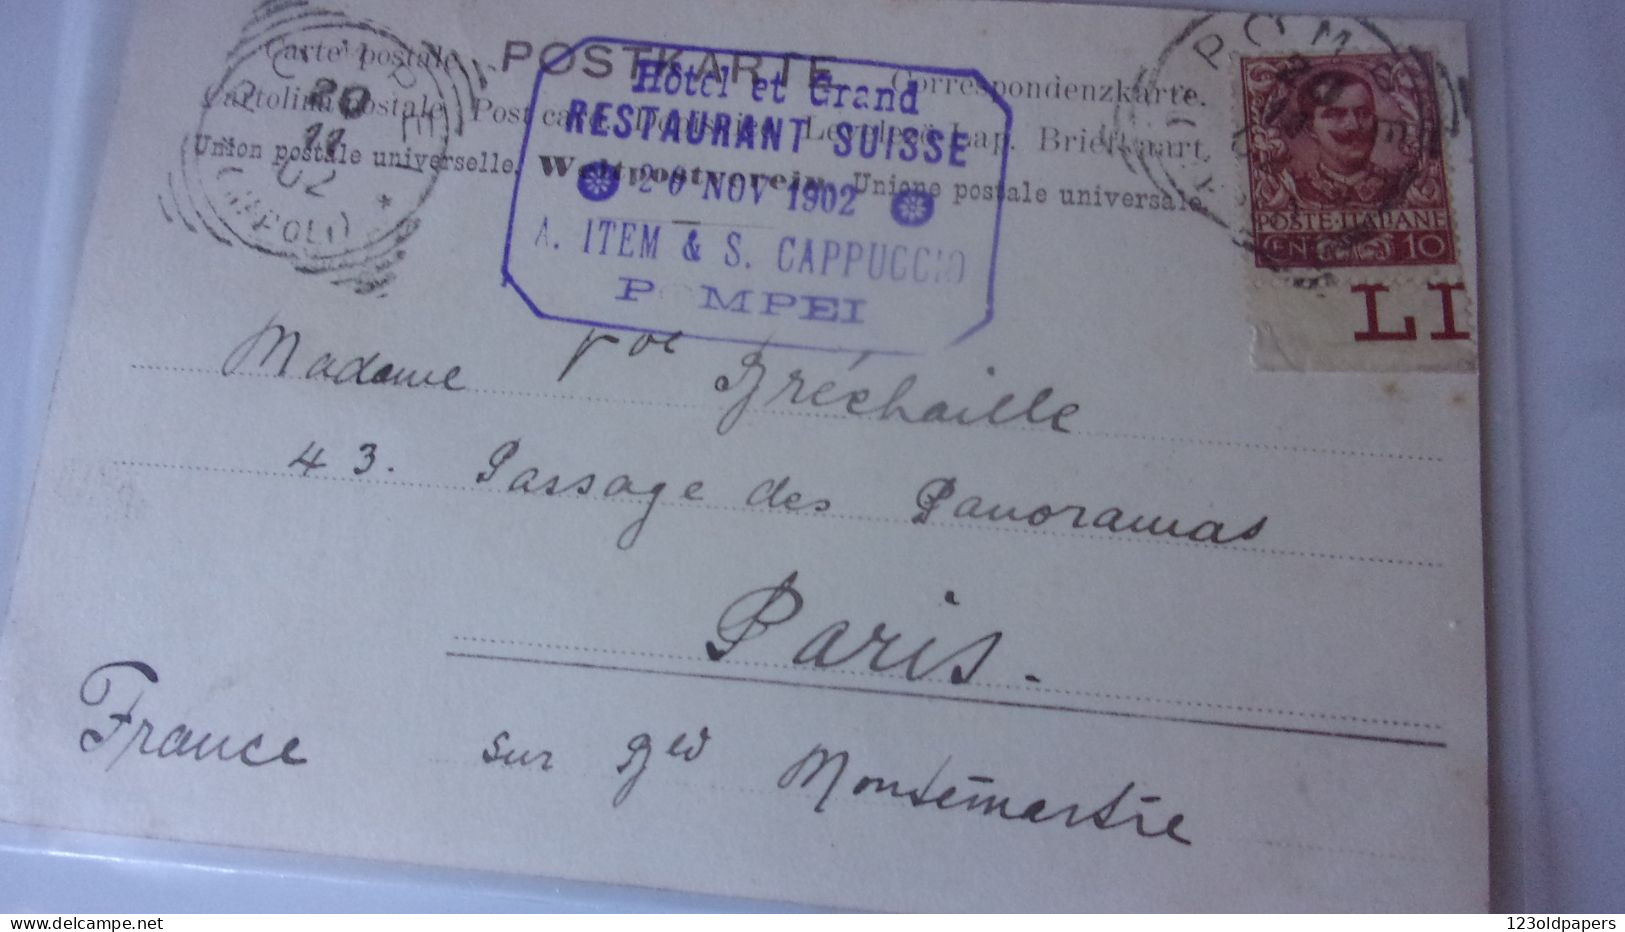 POSTKARTE
Carte postale Correspondenzkarte.
Cartolina postale Post card Briefkaart
Union postale universelle. Weltpostverein. Unione postale universale
Hôtel et Grand
RESTAURANT SUISSE
20 NOV 1902
A. ITEM & S. CAPPUCCIO
POMPEI
20
11
02
(NAPOLI)
POSTE·ITALIANE
CEN 10
LI
Madame Bréchaille
43. Passage des Panoramas
Paris.
France sur Bed Montemartre
123oldpapers
delcampe.net